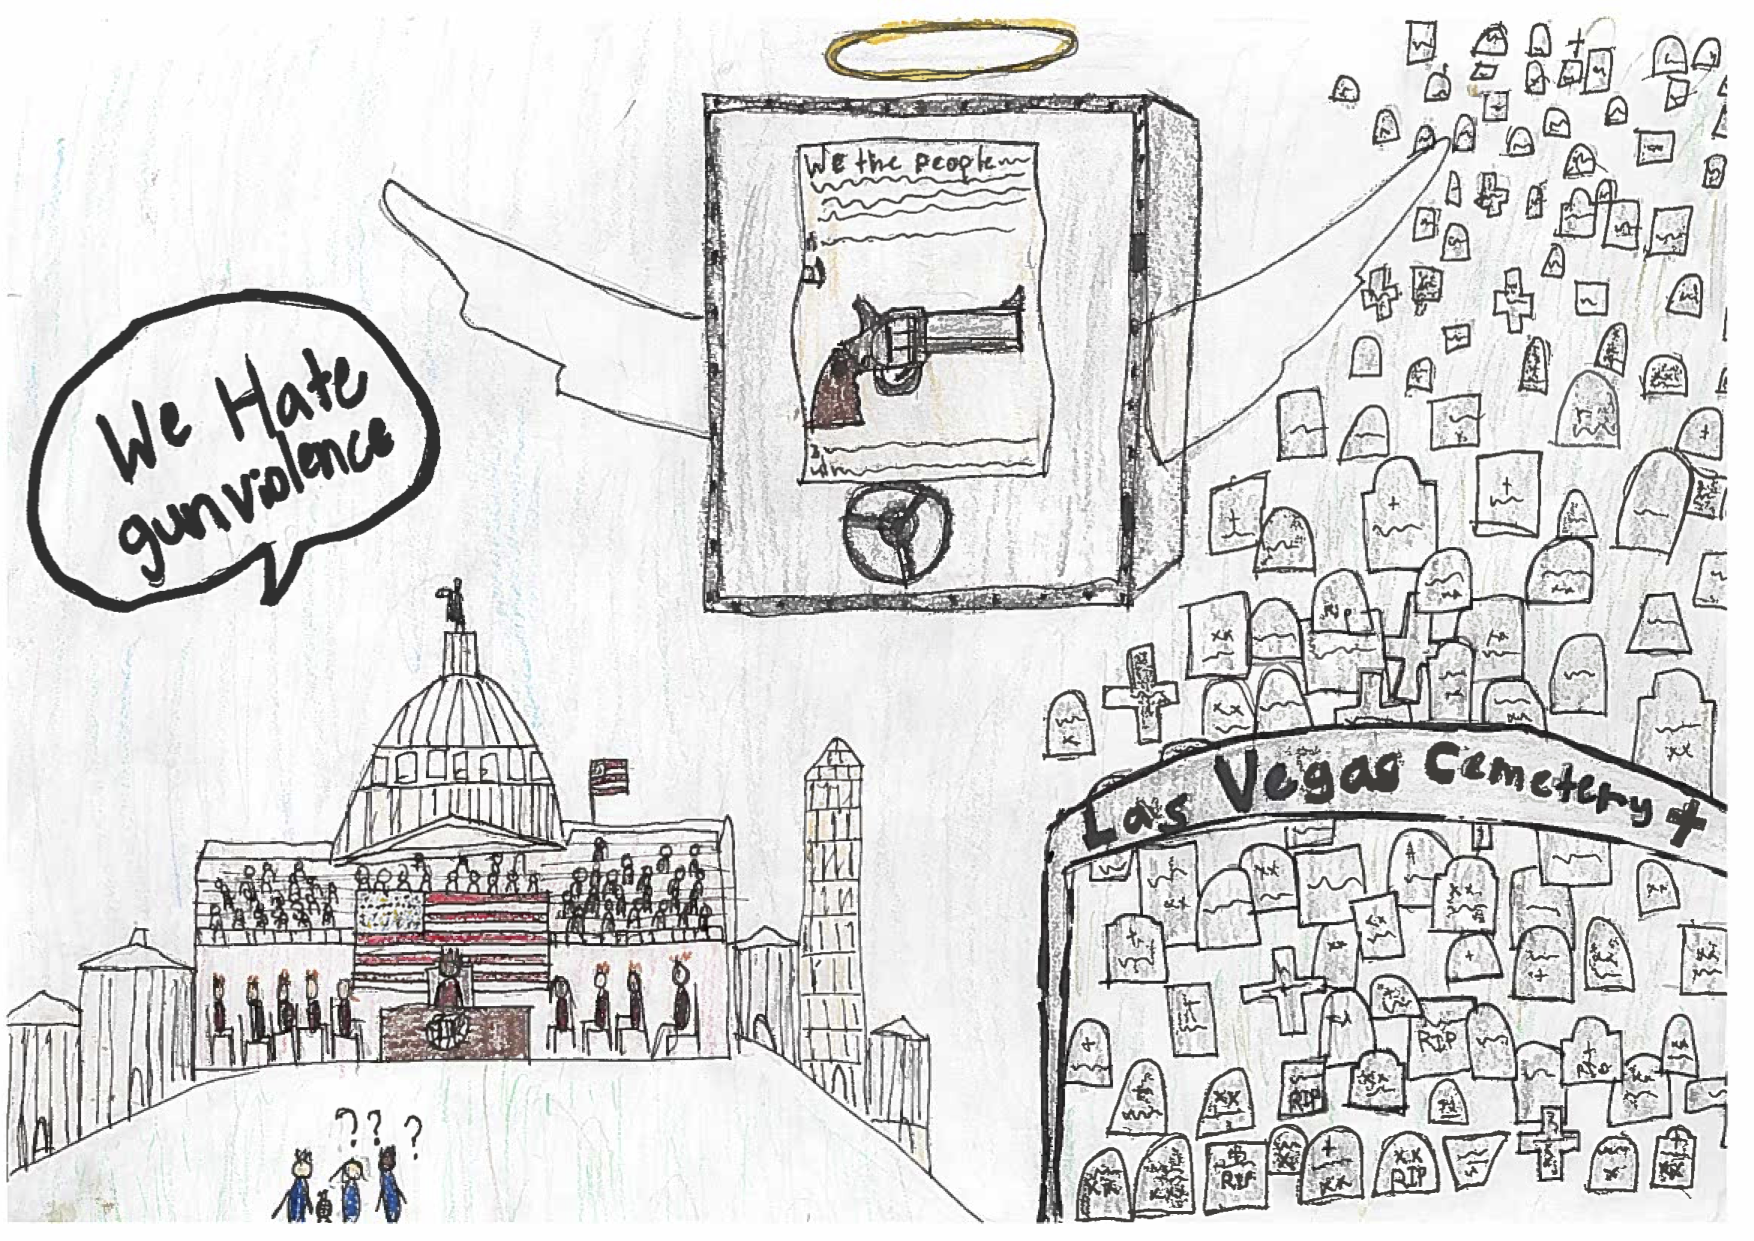 We the people
We Hate
gun violence
Las Vegas Cemetery
? ? ?
RIP
RIP
RIP
RIP
RIP